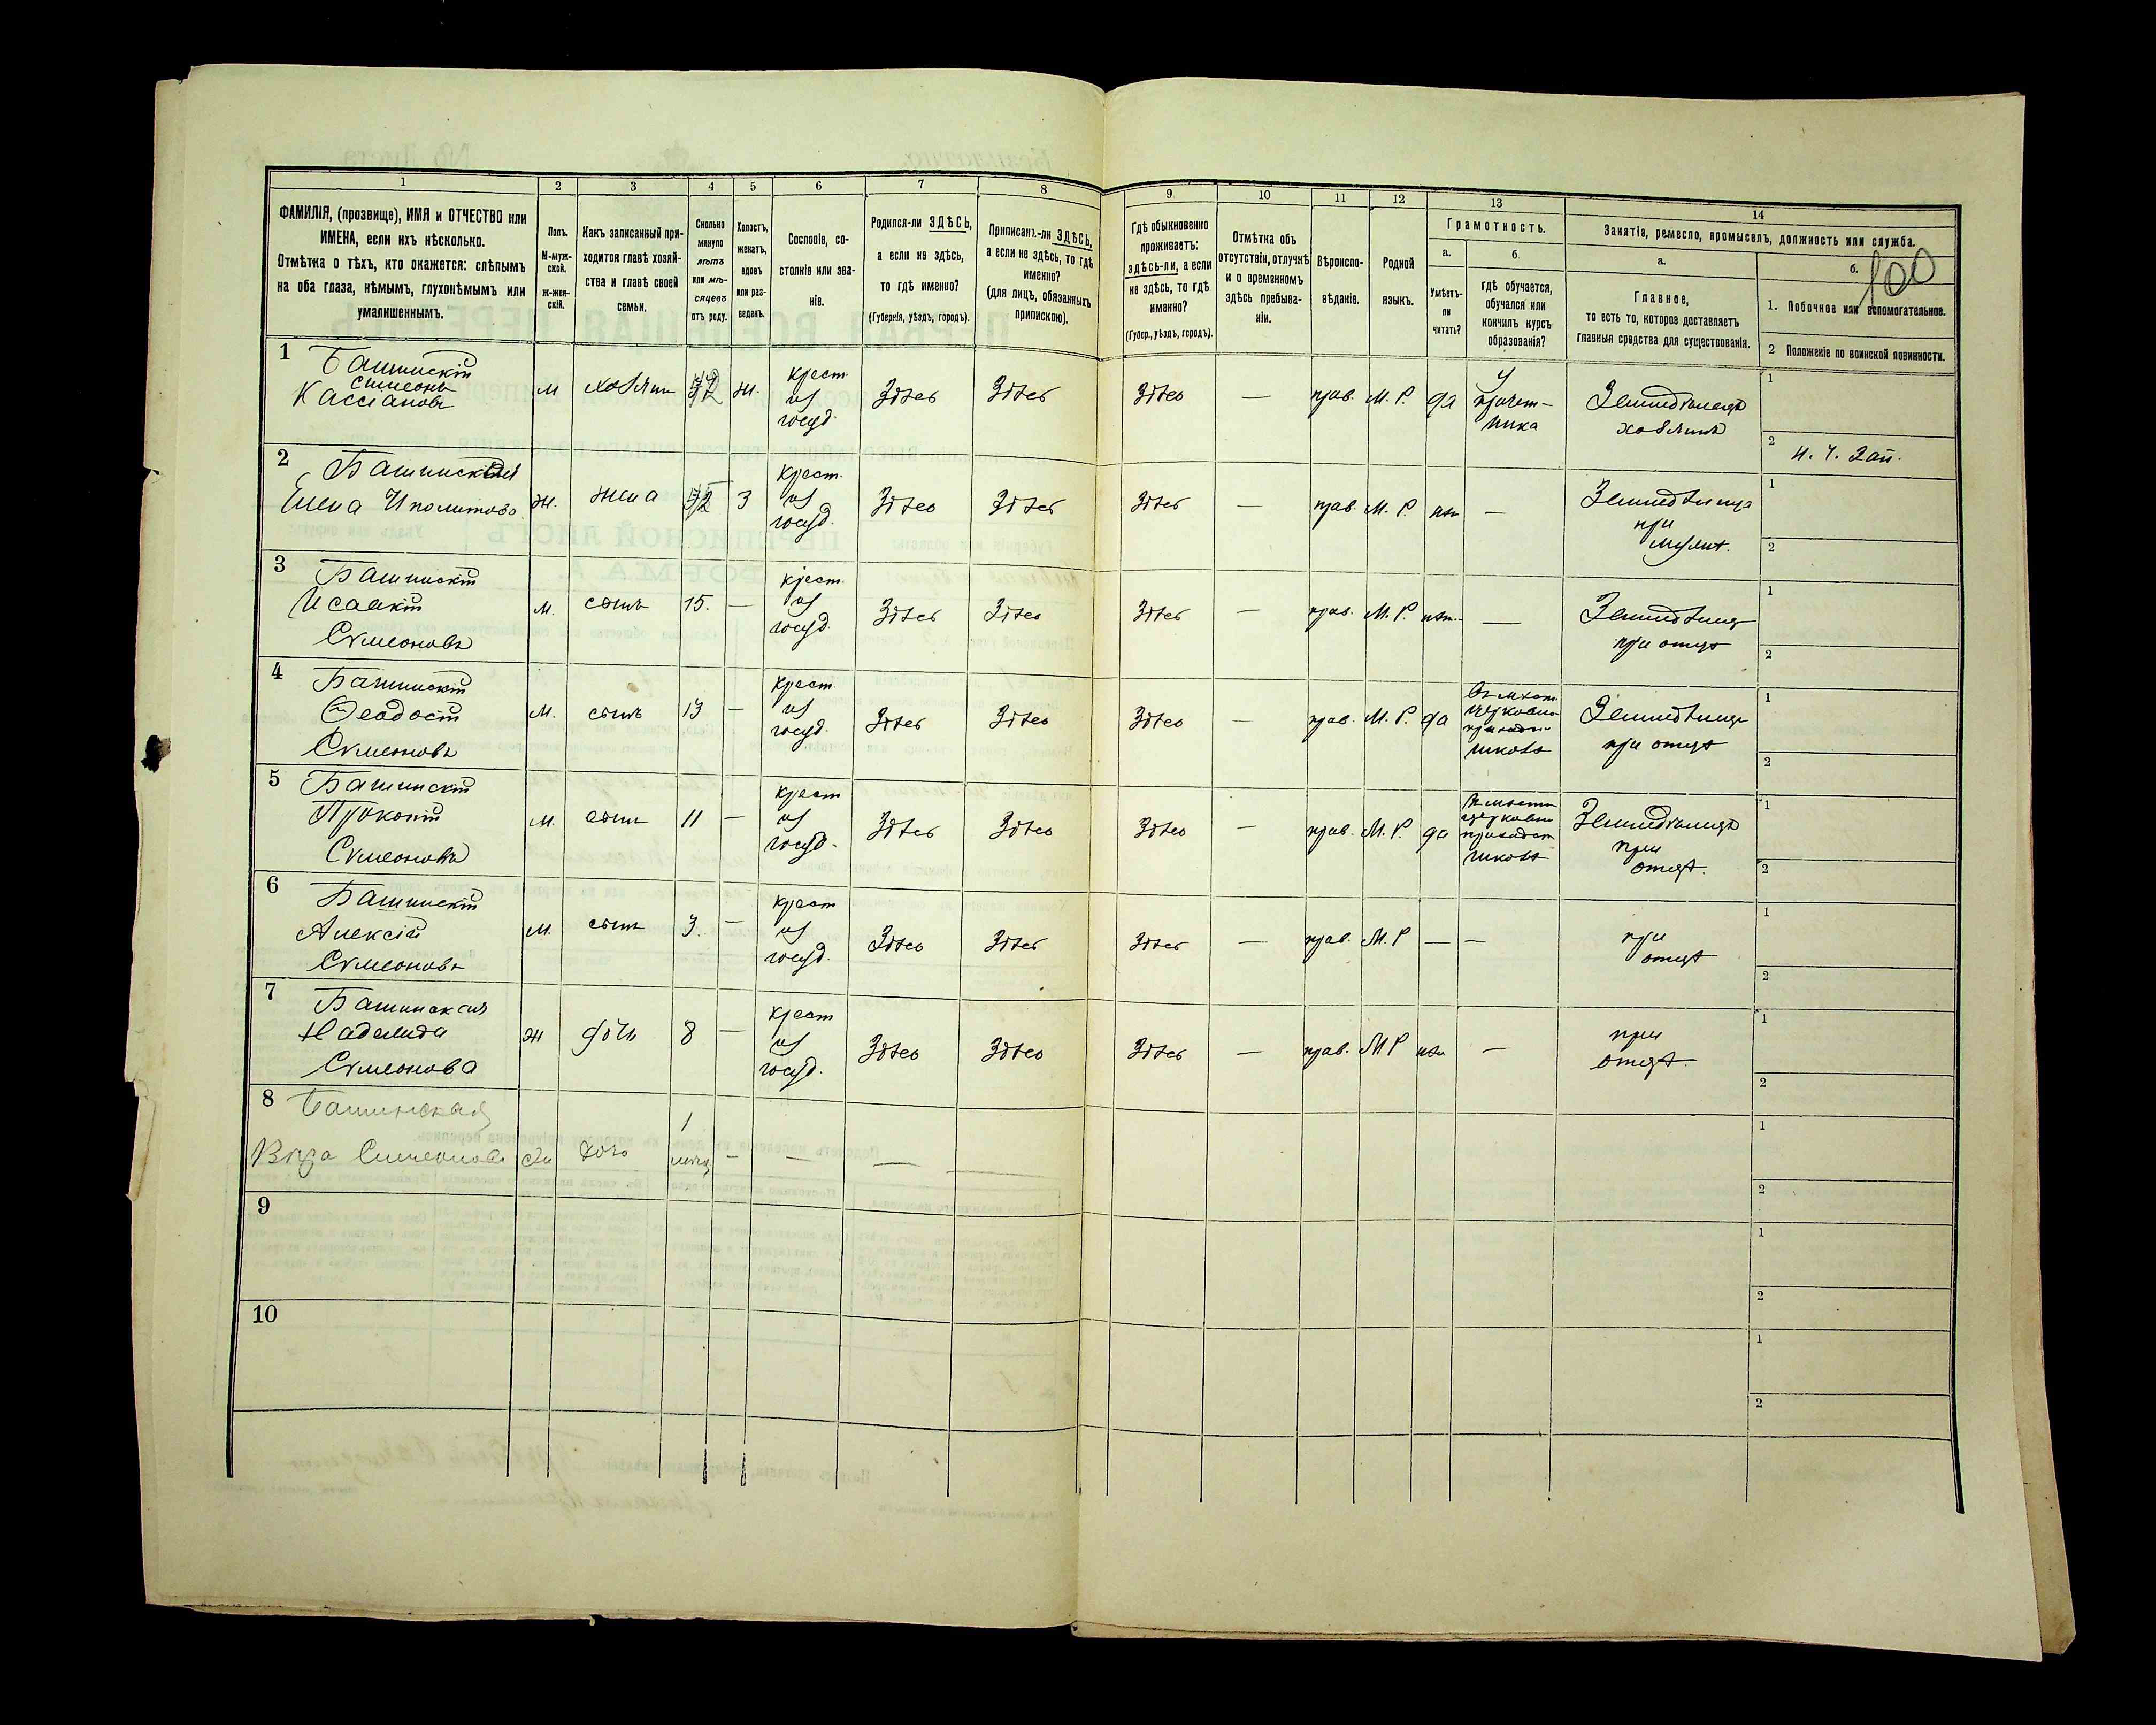 1 2 3 4 5 6 7 8 9 10 11 12 13 14
ФАМИЛІЯ, (прозвище), ИМЯ и ОТЧЕСТВО или
ИМЕНА, если ихъ нѣсколько.
Отмѣтка о тѣхъ, кто окажется: слѣпымъ
на оба глаза, нѣмымъ, глухонѣмымъ или
умалишеннымъ.
Полъ.
М-муж-
ской.
ж-жен-
скій.
Какъ записанный при-
ходится главѣ хозяй-
ства и главѣ своей
семьи.
Сколько
минуло
лѣтъ
или мѣ-
сяцевъ
отъ роду.
Холостъ,
женатъ,
вдовъ
или раз-
веденъ.
Сословіе, со-
стояніе или зва-
ніе.
Родился-ли ЗДѢСЬ,
а если не здѣсь,
то гдѣ именно?
(Губернія, уѣздъ, городъ).
Приписанъ-ли ЗДѢСЬ,
а если не здѣсь, то гдѣ
именно?
(для лицъ, обязанныхъ
припискою).
Гдѣ обыкновенно
проживаетъ:
здѣсь-ли, а если
не здѣсь, то гдѣ
именно?
(Губер., уѣздъ, городъ).
Отмѣтка объ
отсутствіи, отлучкѣ
и о временномъ
здѣсь пребыва-
ніи.
Вѣроиспо-
вѣданіе.
Родной
языкъ.
Грамотность.
а.
Умѣетъ-
ли
читать?
б.
гдѣ обучается,
обучался или
кончилъ курсъ
образованія?
Занятія, ремесло, промыселъ, должность или служба.
а.
Главное,
то есть то, которое доставляетъ
главныя средства для существованія.
б.
100
1. Побочное или вспомогательное.
2 Положеніе по воинской повинности.
1 Башинскій
Симеонъ
Кассіановъ
м хозяинъ ж. крест. из госуд. Здѣсь Здѣсь Здѣсь — прав. М. Р. да
У
причет-
ника
Земледѣлецъ
хозяинъ
1
2
2 Башинская
Елена Иполитова
ж. жена З крест. из госуд. Здѣсь Здѣсь Здѣсь — прав. М. Р. нѣт —
Земледѣлица
при
мужѣ.
1
2
3 Башинскій
Исаакій
Сѵмеоновъ
м. сынъ 15. — крест. из госуд. Здѣсь Здѣсь Здѣсь — прав. М. Р. нѣт. —
Земледѣлецъ
при отцѣ
1
2
4 Башинскій
Ѳеодосій
Сѵмеоновъ
м. сынъ 13 — крест. из госуд. Здѣсь Здѣсь Здѣсь — прав. М. Р. да
церковно
школѣ
Земледѣлецъ
при отцѣ
1
2
5 Башинскій
Прокопій
Сѵмеоновъ
м. сынъ 11 — крест из госуд. Здѣсь Здѣсь Здѣсь — прав. М. Р. да
церковно
приходск
школѣ
Земледѣлецъ
при
отцѣ.
1
2
6 Башинскій
Алексій
Сѵмеоновъ
м. сынъ 3. — крест из госуд. Здѣсь Здѣсь Здѣсь — прав. М. Р — —
при
отцѣ
1
2
7 Башинская
Надежда
Сѵмеонова
ж дочь 8 — крест из госуд. Здѣсь Здѣсь Здѣсь — прав. М Р нѣт —
при
отцѣ.
1
2
8 Башинская
Вѣра Симеонова
дочь 1 — — — —
1
2
9
1
2
10
1
2